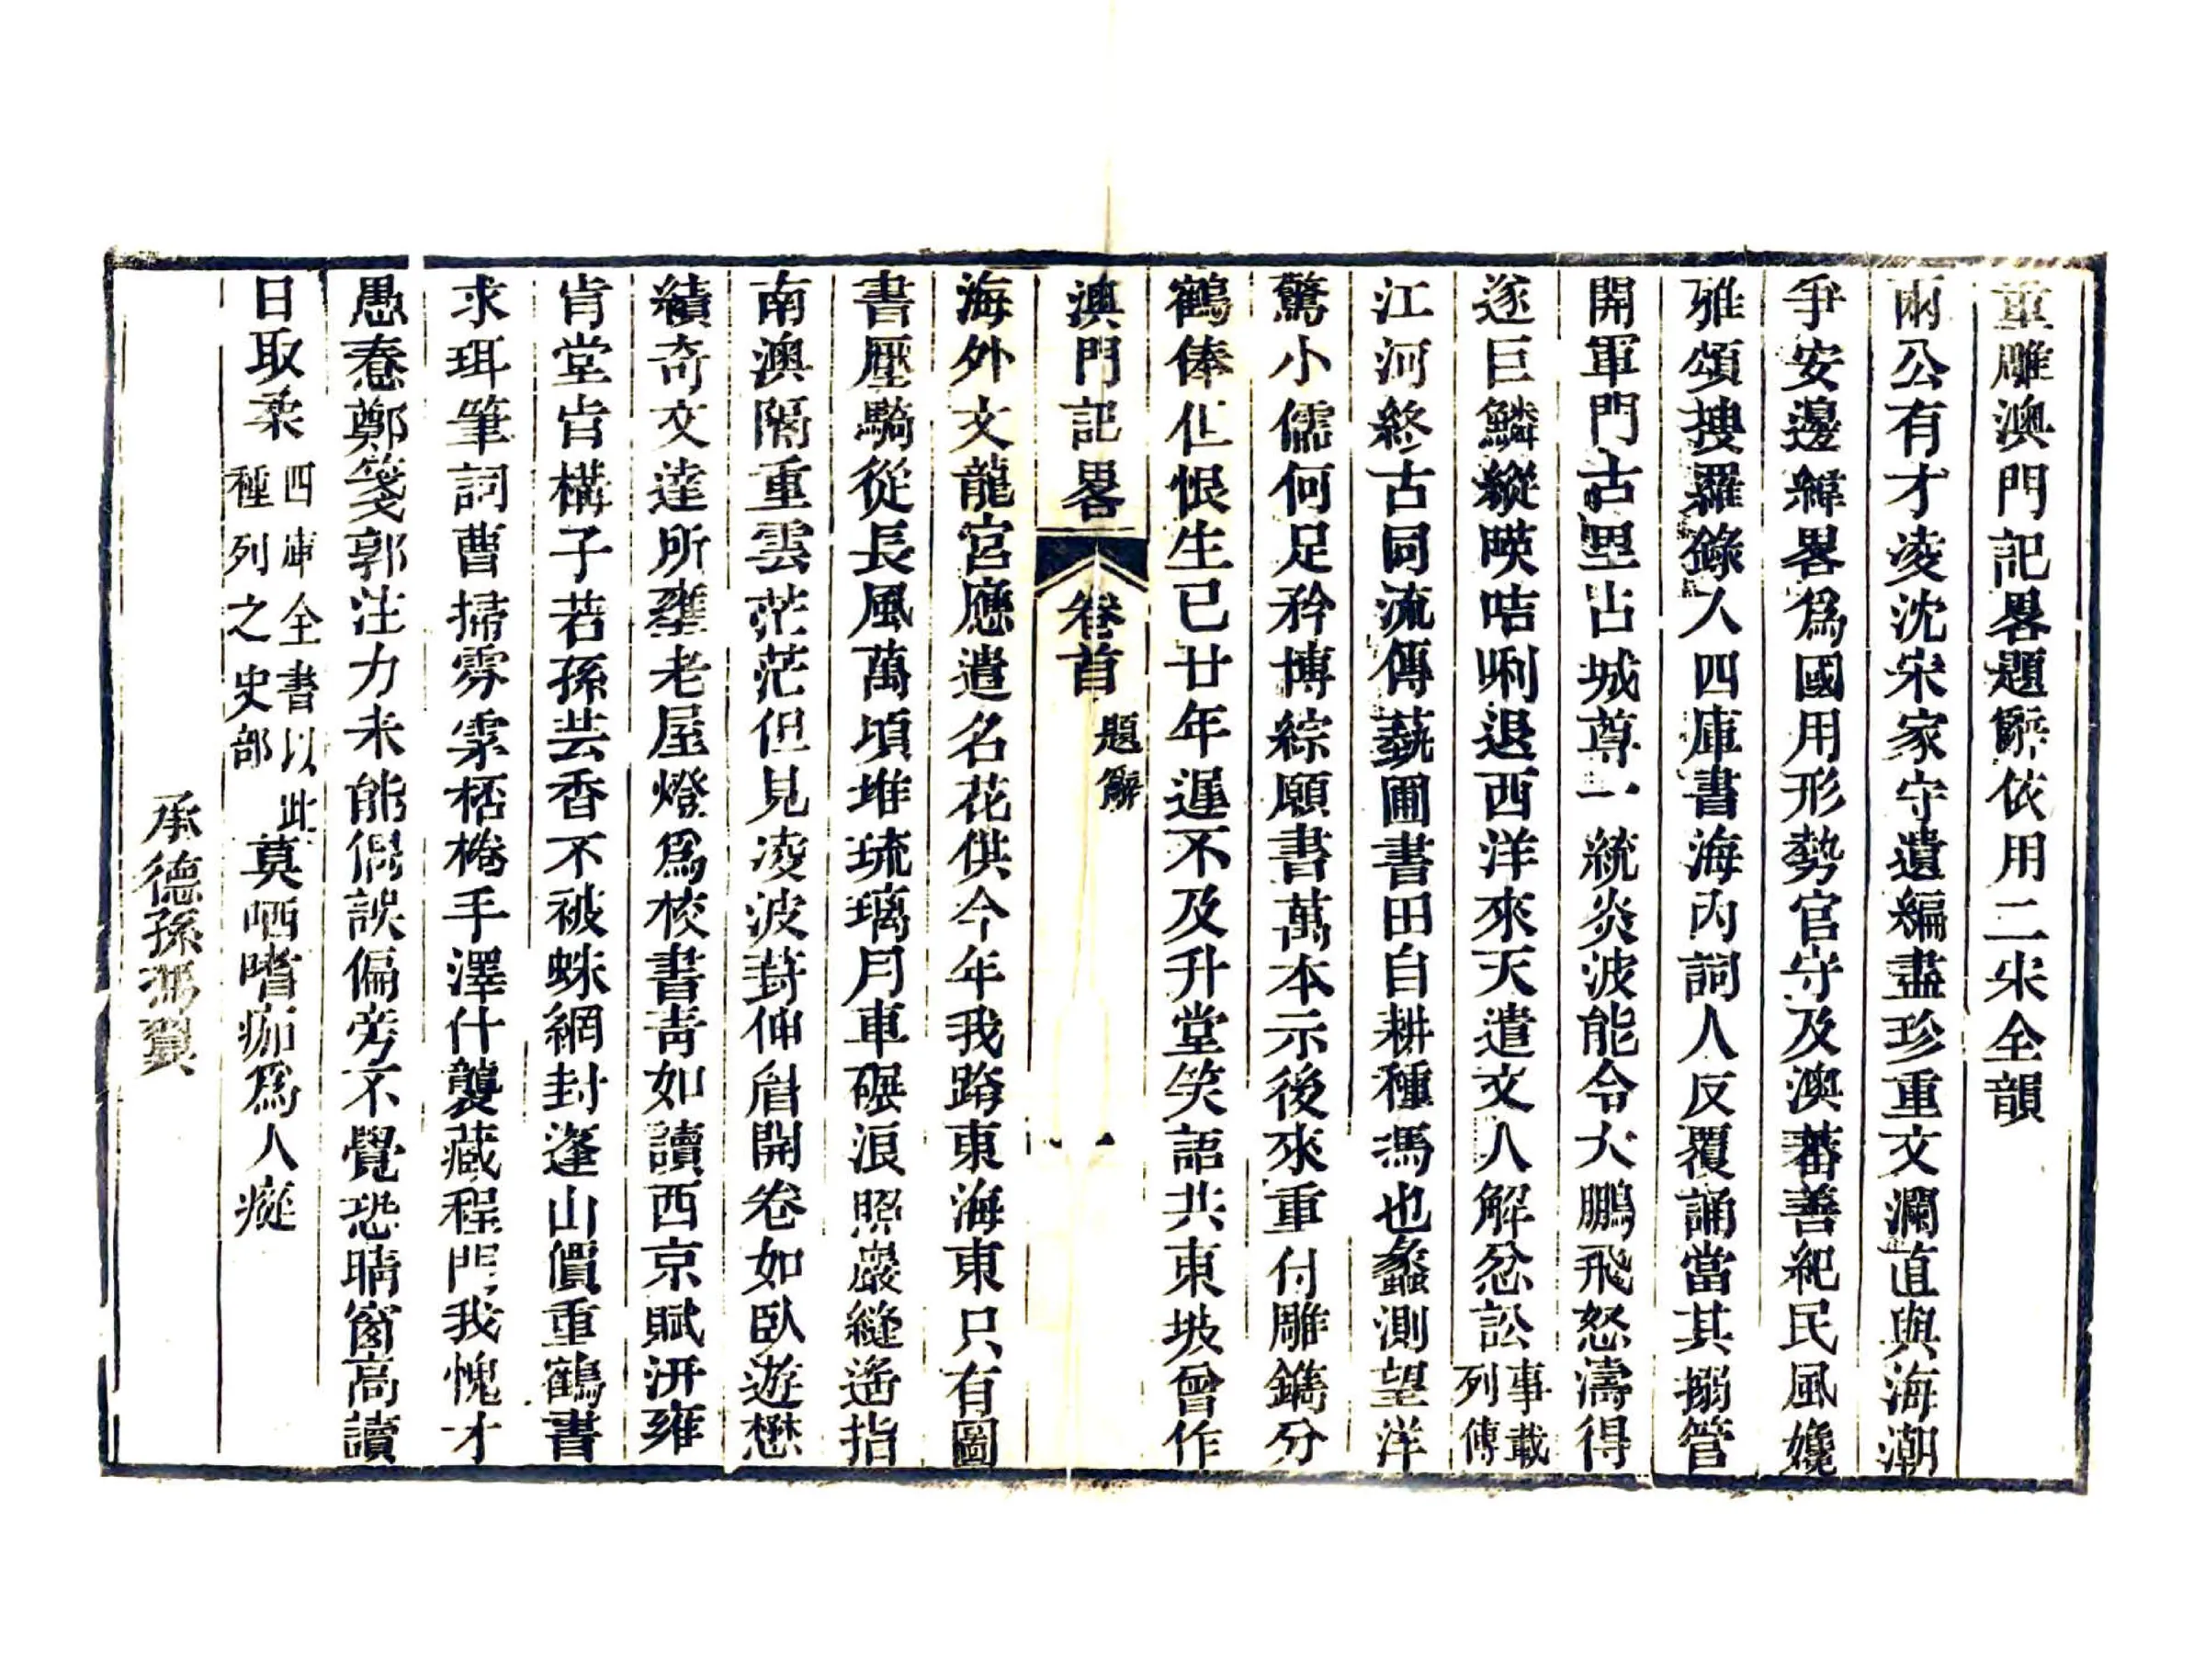 重雕澳門記畧題辭依用二宋全韻
兩公有才凌沈宋家守遺編盡珍重文瀾直與海潮
爭安邊緯畧爲國用形勢官守及澳蕃善紀民風纔
雅頌搜羅錄人四庫書海內詞人反覆誦當其搦管
開軍門古壘占城尊一統炎波能令大鵬飛怒濤得
遂巨鱗縱暎咭唎退西洋來天遣文人解忿訟事載列傳
江河終古同流傳藝圃書田自耕種馮也蠡測望洋
驚小儒何足矜博綜願書萬本示後來重付雕鐫分
鶴俸但恨生已廿年遲不及升堂笑語共東坡曾作
澳門記畧 卷首 題辭 一
海外文龍宮應遣名花供今年我踏東海東只有圖
書壓騎從長風萬頃堆琉璃月車碾浪照巖縫遙指
南澳隔重雲茫茫但見凌波葑伸眉開卷如臥遊懋
績奇文達所壅老屋燈爲校書青如讀西京賦汧雍
肯堂肯構子若孫芸香不被蛛網封逢山價重鶴書
求珥筆詞曹掃雰霿桮棬手澤什襲藏程門我愧才
愚惷鄭箋郭注力未能偶誤偏旁不覺恐晴窗高讀
日取柔四庫全書以此種列之史部莫哂嗜痂爲人癡
承德孫馮翼